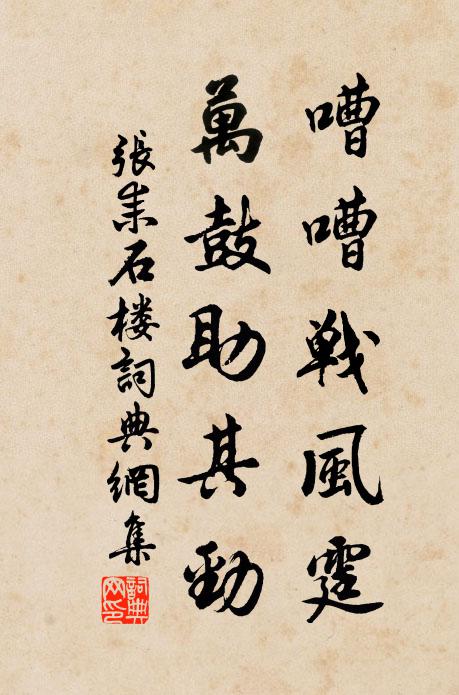 嘈嘈戦風霆
萬鼓助其勁
張耒石楼詞典網集
詞典网印